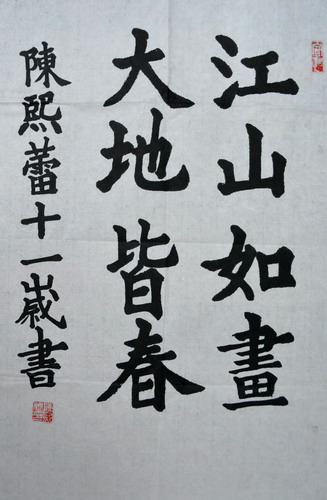 江山如畫
大地皆春
陳熙蕾十一歲書